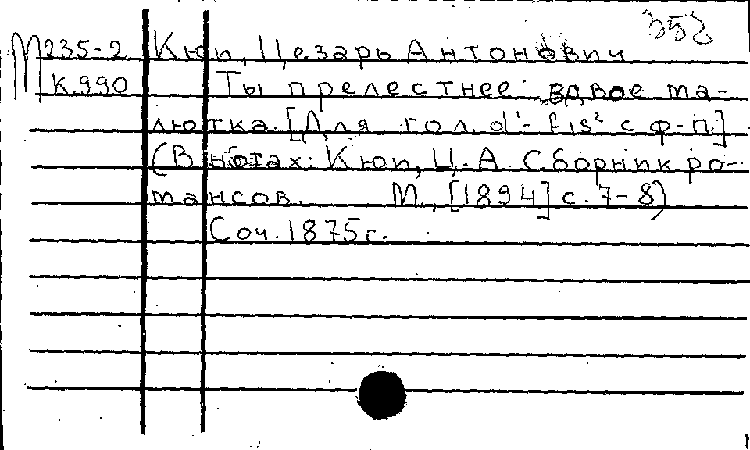 352
М235-2 Кюи, Цезарь Антонович
К.990 Ты прелестнее вдвое ма-
лютка. [Для гол. d'- fis² с ф-п.]
(В нотах: Кюи, Ц. А. Сборник ро-
мансов. М., [1894] с. 7-8)
Соч. 1875 г.